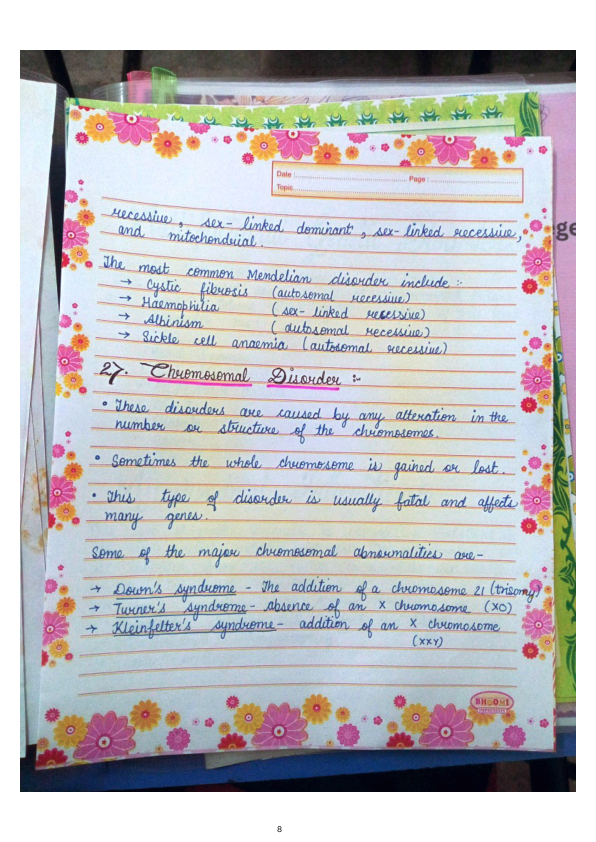 Date : Page :
Topic
recessive, sex-linked dominant, sex-linked recessive,
and mitochondrial.
The most common Mendelian disorder include :-
→ Cystic fibrosis (autosomal recessive)
→ Haemophilia (sex-linked recessive)
→ Albinism (autosomal recessive)
→ Sickle cell anaemia (autosomal recessive)
27. Chromosomal Disorder :-
• These disorders are caused by any alteration in the
number or structure of the chromosomes.
• Sometimes the whole chromosome is gained or lost.
• This type of disorder is usually fatal and affects
many genes.
Some of the major chromosomal abnormalities are-
→ Down's syndrome - The addition of a chromosome 21 (trisomy)
→ Turner's syndrome - absence of an X chromosome (XO)
→ Kleinfelter's syndrome - addition of an X chromosome
(XXY)
BHOOMI
8